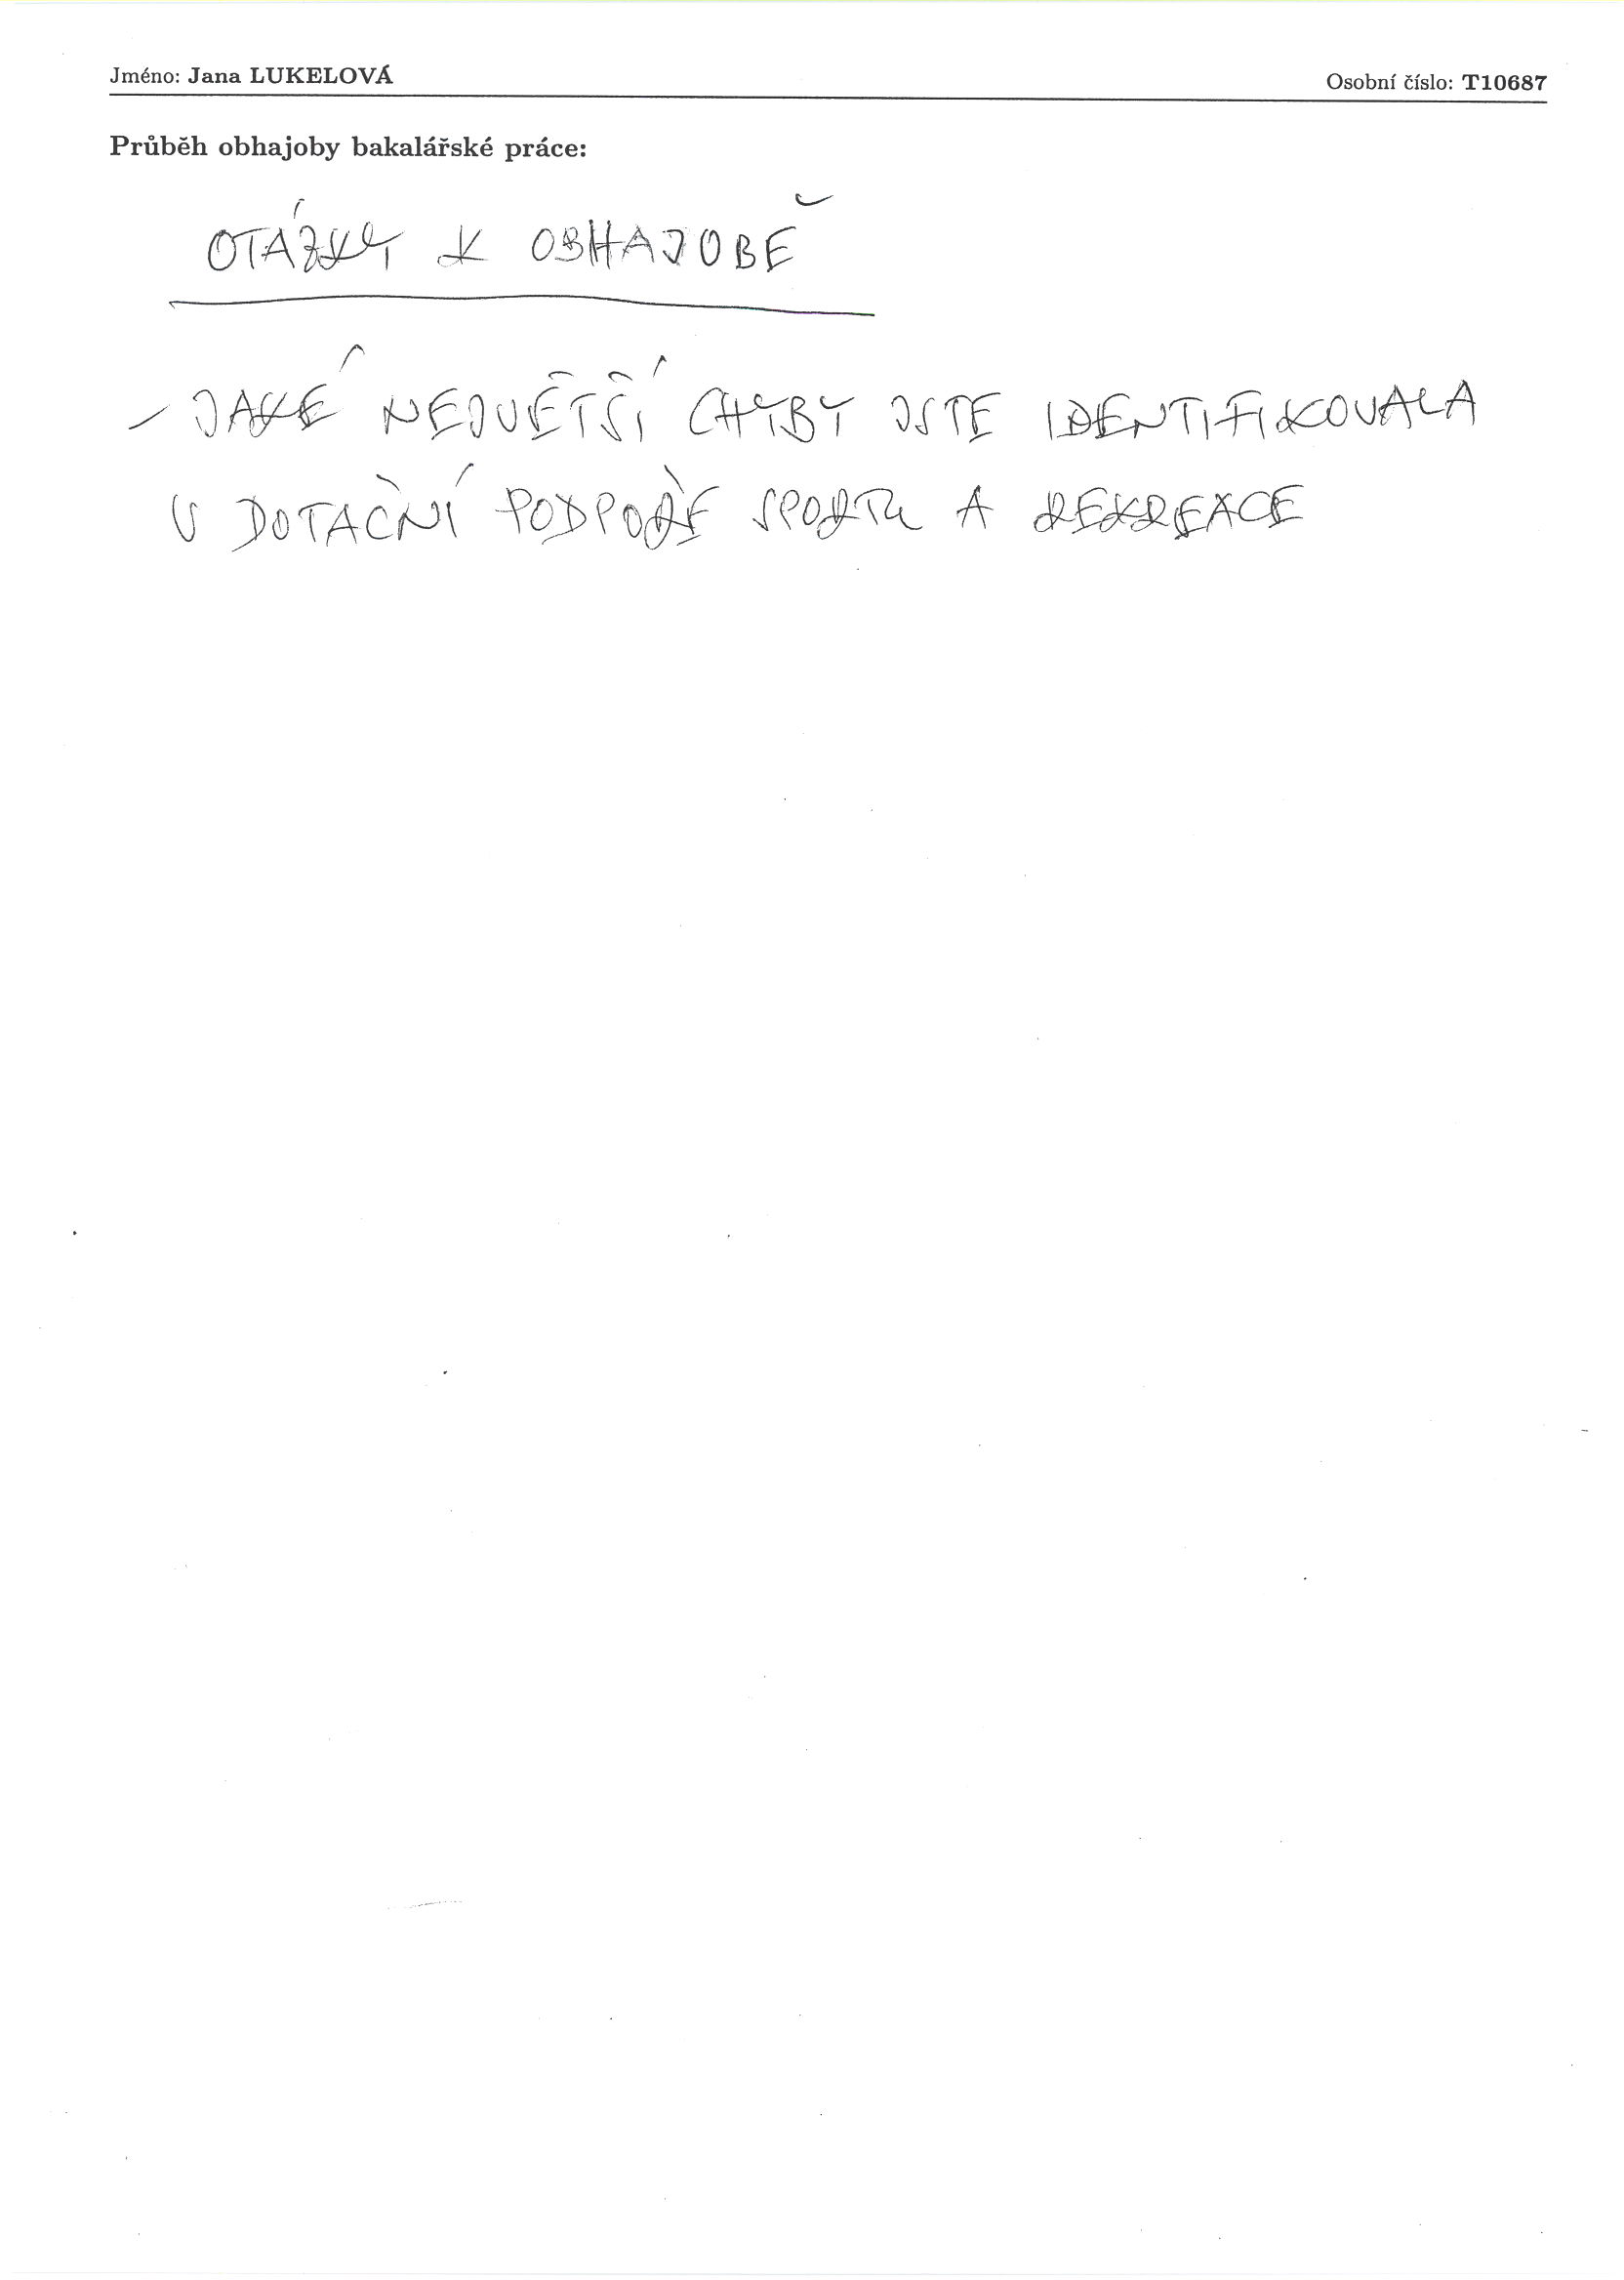 Jméno: Jana LUKELOVÁ
Osobní číslo: T10687
Průběh obhajoby bakalářské práce:
OTÁZKY K OBHAJOBĚ
- JAKÉ NEJVĚTŠÍ CHYBY JSTE IDENTIFIKOVALA
V DOTAČNÍ PODPOŘE SPORTU A REKREACE